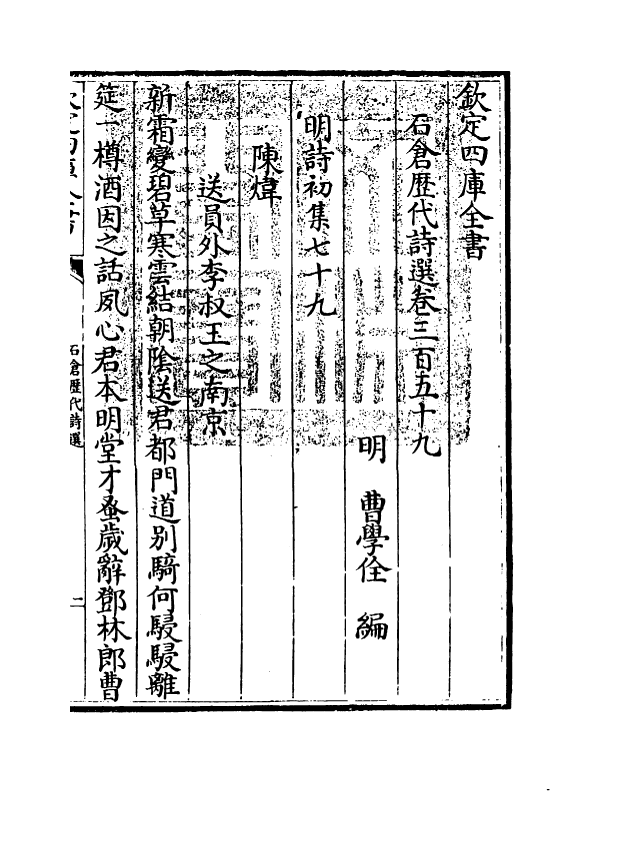 欽定四庫全書
石倉歷代詩選卷三百五十九
明　曹學佺　編
明詩初集七十九
陳煒
送員外李叔王之南京
新霜變碧草寒雲結朝陰送君都門道别騎何駸駸離
筵一樽酒因之話夙心君本明堂才蚤歲辭鄧林郎曹
欽定四庫全書
石倉歷代詩選